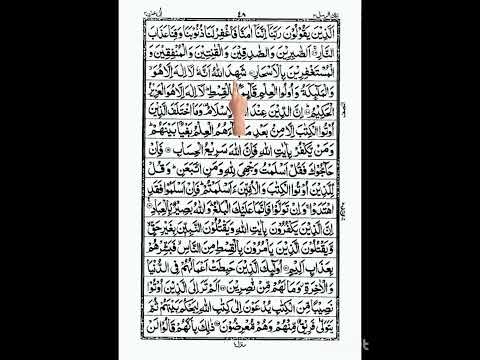 ٤٨
اَلَّذِيْنَ يَقُوْلُوْنَ رَبَّنَآ اِنَّنَآ اٰمَنَّا فَاغْفِرْ لَنَا ذُنُوْبَنَا وَقِنَا عَذَابَ
النَّارِ ۚ اَلصّٰبِرِيْنَ وَالصّٰدِقِيْنَ وَالْقٰنِتِيْنَ وَالْمُنْفِقِيْنَ وَ
الْمُسْتَغْفِرِيْنَ بِالْاَسْحَارِ شَهِدَ اللّٰهُ اَنَّهٗ لَآ اِلٰهَ اِلَّا هُوَ ۙ
وَالْمَلٰٓئِكَةُ وَاُولُوا الْعِلْمِ قَآئِمًۢا بِالْقِسْطِ ؕ لَآ اِلٰهَ اِلَّا هُوَ الْعَزِيْزُ
الْحَكِيْمُ ؕ اِنَّ الدِّيْنَ عِنْدَ اللّٰهِ الْاِسْلَامُ ۟ وَمَا اخْتَلَفَ الَّذِيْنَ
اُوْتُوا الْكِتٰبَ اِلَّا مِنْۢ بَعْدِ مَا جَآءَهُمُ الْعِلْمُ بَغْيًۢا بَيْنَهُمْ ؕ
وَمَنْ يَّكْفُرْ بِاٰيٰتِ اللّٰهِ فَاِنَّ اللّٰهَ سَرِيْعُ الْحِسَابِ فَاِنْ
حَآجُّوْكَ فَقُلْ اَسْلَمْتُ وَجْهِيَ لِلّٰهِ وَمَنِ اتَّبَعَنِ ؕ وَقُلْ
لِّلَّذِيْنَ اُوْتُوا الْكِتٰبَ وَالْاُمِّيّٖنَ ءَاَسْلَمْتُمْ ؕ فَاِنْ اَسْلَمُوْا فَقَدِ
اهْتَدَوْا ۚ وَاِنْ تَوَلَّوْا فَاِنَّمَا عَلَيْكَ الْبَلٰغُ ؕ وَاللّٰهُ بَصِيْرٌۢ بِالْعِبَادِ
اِنَّ الَّذِيْنَ يَكْفُرُوْنَ بِاٰيٰتِ اللّٰهِ وَيَقْتُلُوْنَ النَّبِيّٖنَ بِغَيْرِ حَقٍّ ۙ
وَّيَقْتُلُوْنَ الَّذِيْنَ يَاْمُرُوْنَ بِالْقِسْطِ مِنَ النَّاسِ ۙ فَبَشِّرْهُمْ
بِعَذَابٍ اَلِيْمٍ اُولٰٓئِكَ الَّذِيْنَ حَبِطَتْ اَعْمَالُهُمْ فِي الدُّنْيَا
وَالْاٰخِرَةِ ۫ وَمَا لَهُمْ مِّنْ نّٰصِرِيْنَ اَلَمْ تَرَ اِلَى الَّذِيْنَ اُوْتُوْا
نَصِيْبًا مِّنَ الْكِتٰبِ يُدْعَوْنَ اِلٰى كِتٰبِ اللّٰهِ لِيَحْكُمَ بَيْنَهُمْ ثُمَّ
يَتَوَلّٰى فَرِيْقٌ مِّنْهُمْ وَهُمْ مُّعْرِضُوْنَ ذٰلِكَ بِاَنَّهُمْ قَالُوْا لَنْ